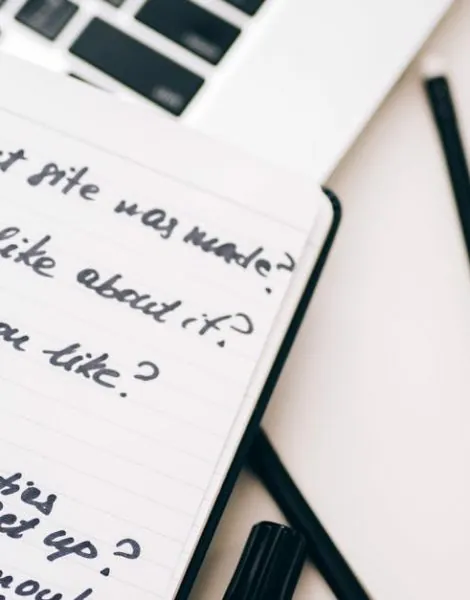 t site was made?
like about it?
ou like?
ties
et up?